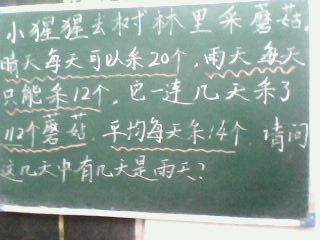 小猩猩去树林里采蘑菇,
晴天每天可以采20个,雨天每天
只能采12个,它一连几天采了
112个蘑菇,平均每天采14个,请问
这几天中有几天是雨天?